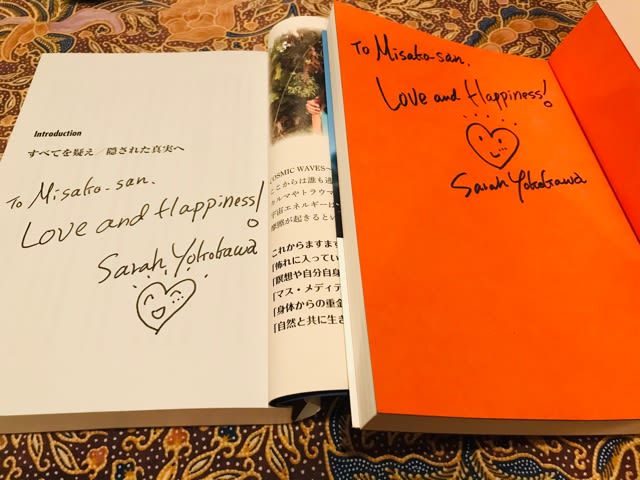 Introduction
すべてを疑え/隠された真実へ
To Misako-san.
Love and Happiness!
Sarah Yokokawa
COSMIC WAVES~
ここからは誰も
カルマやトラウマ
宇宙エネルギーは
摩擦が起きるとい
これからますます
「怖れに入ってい
「瞑想や自分自身
「マス・メディ
「身体からの重金
「自然と共に生き
To Misako-san.
Love and Happiness!
Sarah Yokokawa